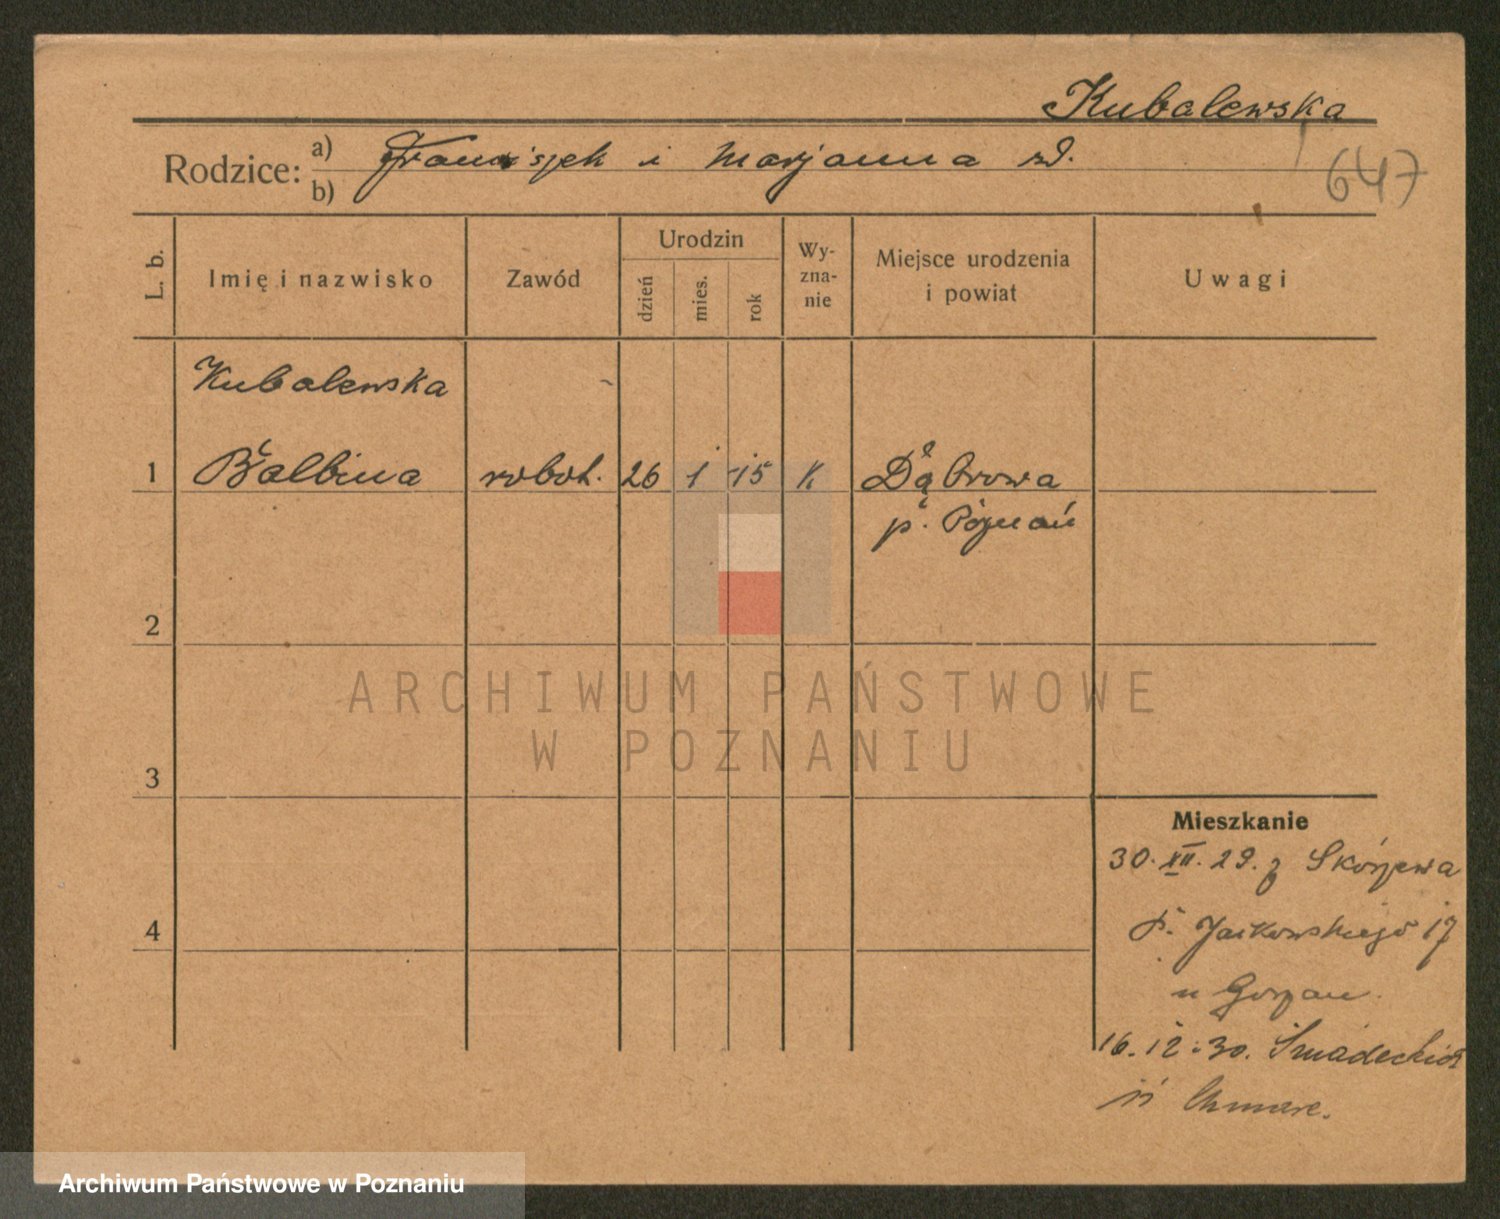 Kubalewska
Rodzice: a) Franciszek i Marjanna
b)
647
L. b.
Imię i nazwisko
Zawód
Urodzin
dzień
mies.
rok
Wy-
zna-
nie
Miejsce urodzenia
i powiat
Uwagi
Kubalewska
1 Balbina robot. 26 1 15 K Dąbrowa
p. Poznań
2
3
4
Mieszkanie
30. XII. 29. z Skórzewa
p. Jackowskiego 17
u
16. 12. 30. Śniadeckich
ARCHIWUM PAŃSTWOWE
W POZNANIU
Archiwum Państwowe w Poznaniu